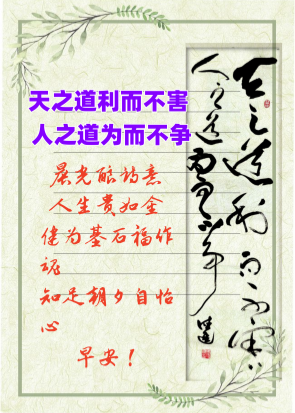 天之道利而不害
人之道为而不争
晨光酿诗意
人生贵如金
健为基石福作
魂
知足朝夕自怡
心
早安！
天之道利而不害
人之道为而不争